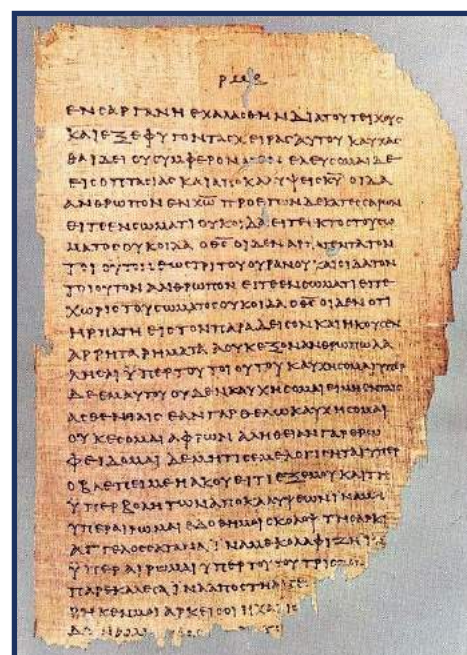 ΕΝϹΑΡΓΑΝΗΕΧΑΛΑϹΘΗΝΔΙΑΤΟΥΤΕΙΧΟΥϹ
ΚΑΙΕΞΕΦΥΓΟΝΤΑϹΧΕΙΡΑϹΑΥΤΟΥΚΑΥΧΑϹ
ΘΑΙΔΕΙΟΥϹΥΜΦΕΡΟΝΕΛΕΥϹΟΜΑΙΔΕ
ΕΙϹΟΠΤΑϹΙΑϹΚΑΙΑΠΟΚΑΛΥΨΕΙϹΚ̅Υ̅ΟΙΔΑ
ΑΝΘΡΩΠΟΝΕΝΧ̅Ω̅ΠΡΟΕΤΩΝΔΕΚΑΤΕϹϹΑΡΩΝ
ΕΙΤΕΕΝϹΩΜΑΤΙΟΥΚΟΙΔΑΕΙΤΕΕΚΤΟϹΤΟΥϹΩ
ΜΑΤΟϹΟΥΚΟΙΔΑΟΘ̅Ϲ̅ΟΙΔΕΝΑΡΠΑΓΕΝΤΑΤΟΝ
ΤΟΙΟΥΤΟΝΕΩϹΤΡΙΤΟΥΟΥΡΑΝΟΥΚΑΙΟΙΔΑΤΟΝ
ΤΟΙΟΥΤΟΝΑΝΘΡΩΠΟΝΕΙΤΕΕΝϹΩΜΑΤΙΕΙΤΕ
ΧΩΡΙϹΤΟΥϹΩΜΑΤΟϹΟΥΚΟΙΔΑΟΘ̅Ϲ̅ΟΙΔΕΝΟΤΙ
ΗΡΠΑΓΗΕΙϹΤΟΝΠΑΡΑΔΕΙϹΟΝΚΑΙΗΚΟΥϹΕΝ
ΑΡΡΗΤΑΡΗΜΑΤΑΑΟΥΚΕΞΟΝΑΝΘΡΩΠΩΛΑ
ΛΗϹΑΙΫΠΕΡΤΟΥΤΟΙΟΥΤΟΥΚΑΥΧΗϹΟΜΑΙΥΠΕΡ
ΔΕΕΜΑΥΤΟΥΟΥΔΕΝΚΑΥΧΗϹΟΜΑΙΕΙΜΗΕΝΤΑΙϹ
ΑϹΘΕΝΕΙΑΙϹΕΑΝΓΑΡΘΕΛΩΚΑΥΧΗϹΟΜΑΙ
ΟΥΚΕϹΟΜΑΙΑΦΡΩΝΑΛΗΘΕΙΑΝΓΑΡΕΡΩ
ΦΕΙΔΟΜΑΙΔΕΜΗΤΙϹΕΜΕΛΟΓΙϹΗΤΑΙΥΠΕΡ
ΟΒΛΕΠΕΙΜΕΗΑΚΟΥΕΙΤΙΕΞΕΜΟΥΚΑΙΤΗ
ΫΠΕΡΒΟΛΗΤΩΝΑΠΟΚΑΛΥΨΕΩΝΪΝΑΜΗ
ΥΠΕΡΑΙΡΩΜΑΙΕΔΟΘΗΜΟΙϹΚΟΛΟΨΤΗϹΑΡΚΙ
ΑΓΓΕΛΟϹϹΑΤΑΝΑΪΝΑΜΕΚΟΛΑΦΙΖΗ
ΫΠΕΡΑΙΡΩΜΑΙΥΠΕΡΤΟΥΤΟΥΤΡΙϹ
ΠΑΡΕΚΑΛΕϹΑΪΝΑΑΠΟϹΤΗ
ΡΗΚΕΝΜΟΙΑΡΚΕΙϹΟΙΗΧΑ